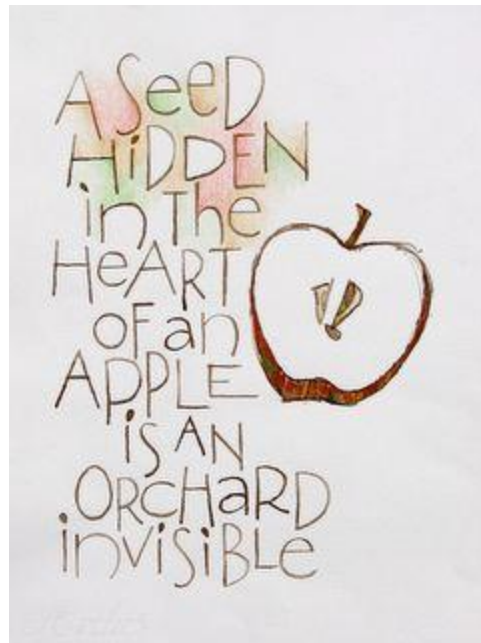 A SeeD
HiDDEN
in The
HeART
oF an
APPLE
is AN
ORCHaRD
inviSiBLe